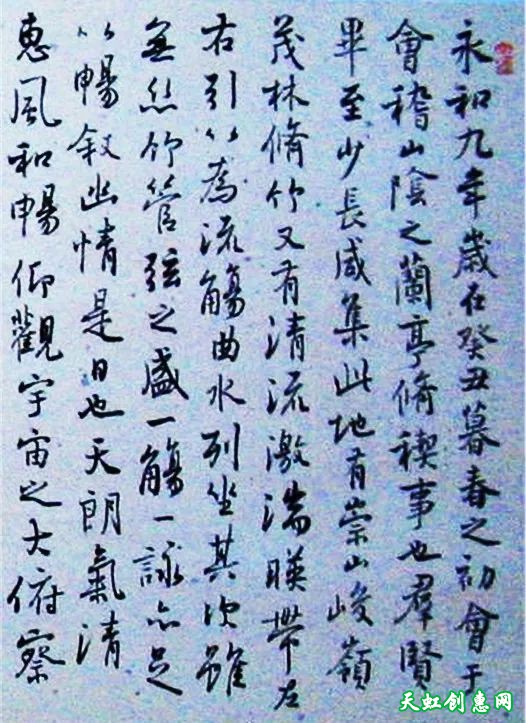 永和九年歲在癸丑暮春之初會于
會稽山陰之蘭亭脩稧事也羣賢
畢至少長咸集此地有崇山峻嶺
茂林脩竹又有清流激湍暎帶左
右引以為流觴曲水列坐其次雖
無絲竹管弦之盛一觴一詠亦足
以暢叙幽情是日也天朗氣清
惠風和暢仰觀宇宙之大俯察
天虹创惠网